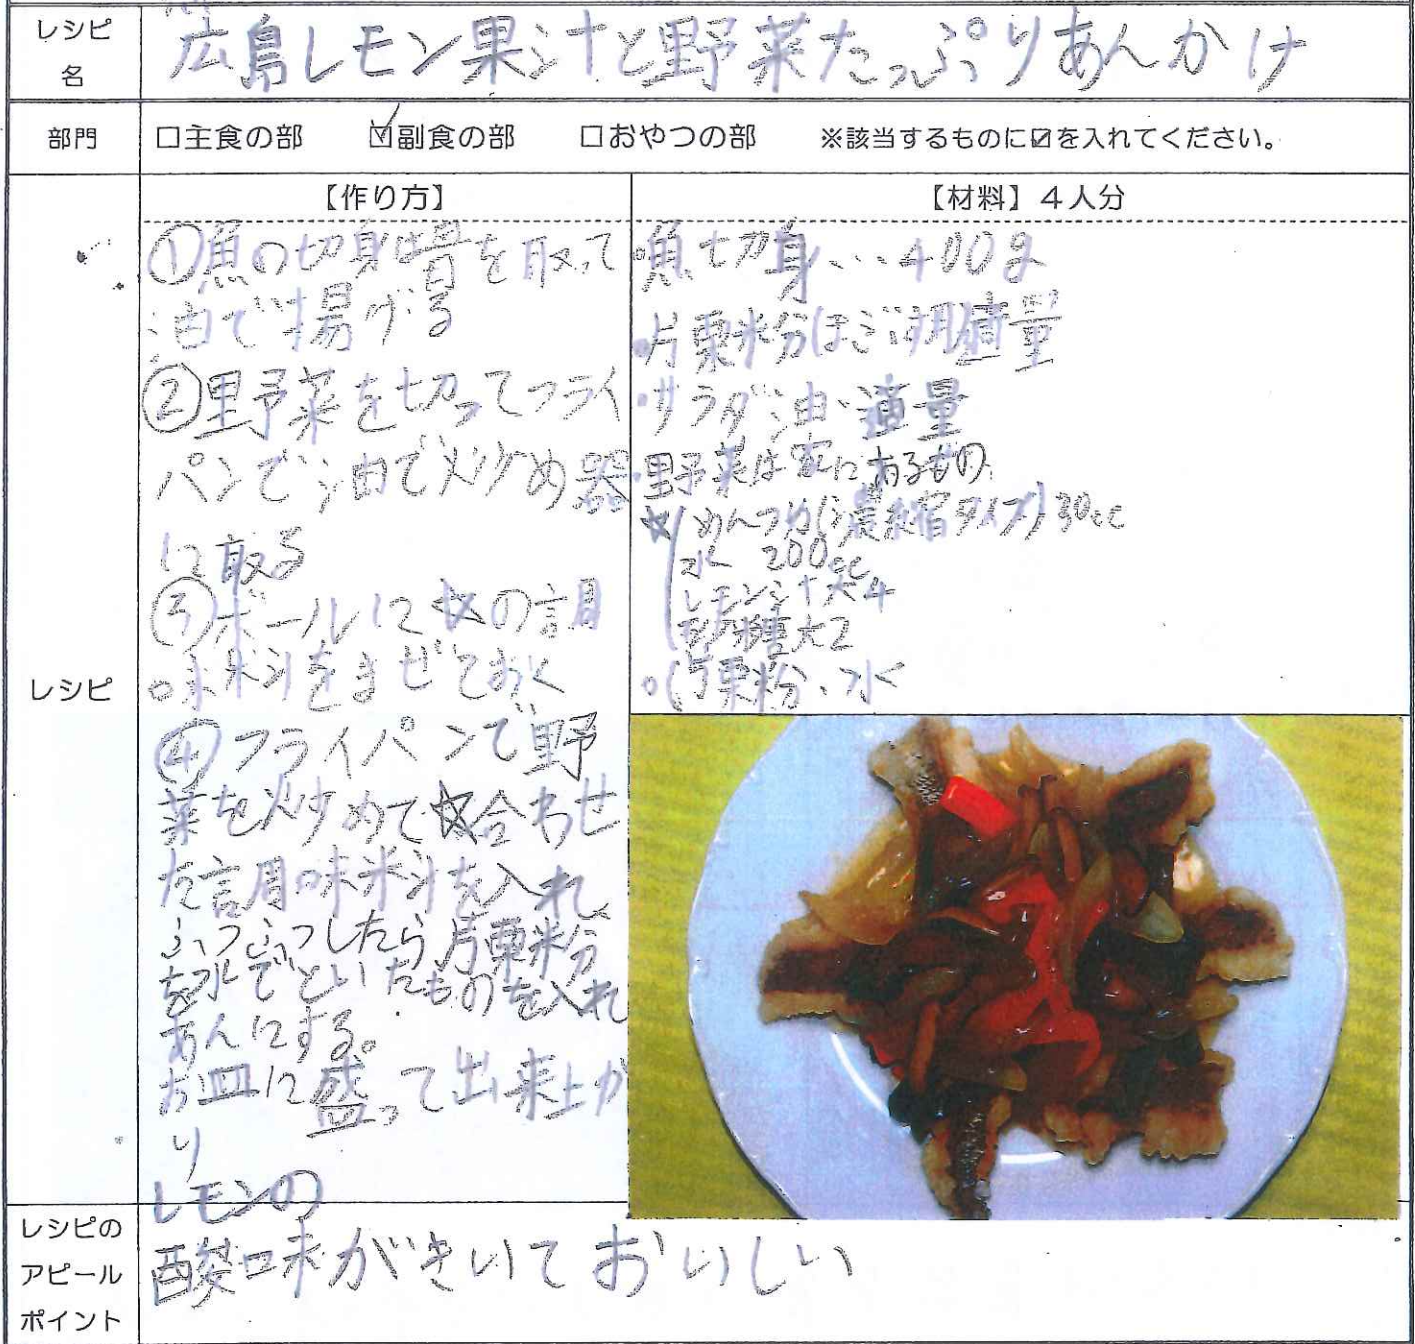 レシピ名
広島レモン果汁と野菜たっぷりあんかけ
部門
□主食の部 ☑副食の部 □おやつの部 ※該当するものに☑を入れてください。
レシピ
【作り方】
①魚の切身は骨を取って
油で揚げる
②野菜を切ってフライ
パンで油で炒め器
に取る
③ボールに☆の調
味料をまぜておく
④フライパンで野
菜を炒めて☆合わせ
た調味料を入れ、
ふつふつしたら片栗粉
を水でといたものを入れ
あんにする。
お皿に盛って出来上が
り
【材料】4人分
魚切身…400g
・片栗粉 適量
・サラダ油 適量
・野菜は家にあるもの
☆めんつゆ(濃縮タイプ)30cc
水 200cc
レモン汁大4
砂糖大2
○片栗粉、水
レシピの
アピール
ポイント
レモンの
酸味がきいておいしい